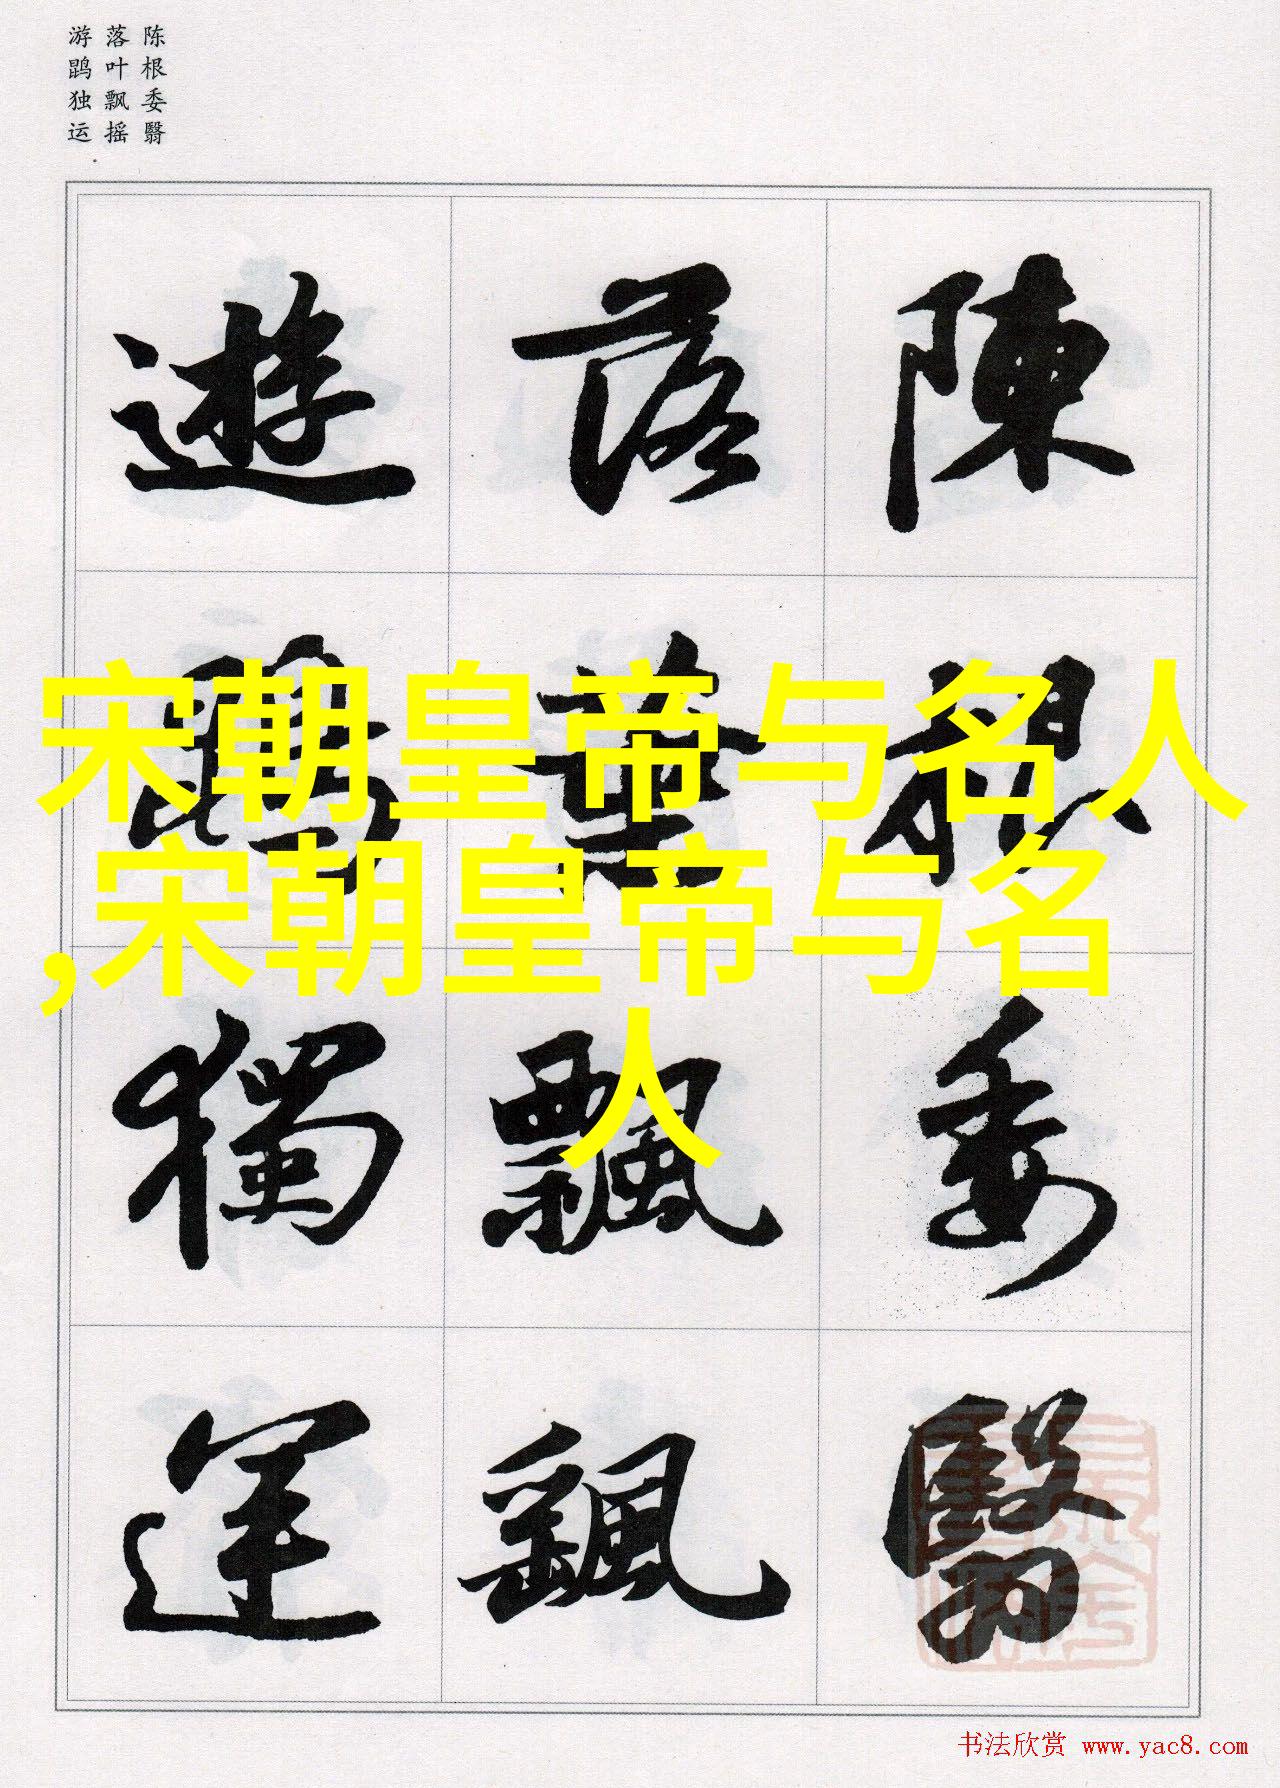 陈根委翳
落叶飘摇
游鹍独运
陳根委翳
落葉飄颻
遊鵾獨運
宋朝皇帝与名人
,宋朝皇帝与名
人
书法欣赏 www.yac8.com